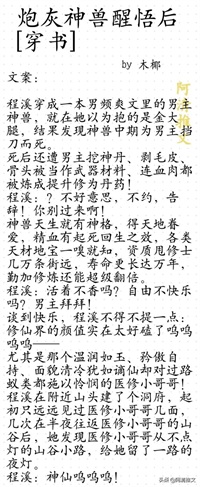 炮灰神兽醒悟后
[穿书]
by 木椰
文案：
程溪穿成一本男频爽文里的男主
神兽，就在她以为抱的是金大
腿，结果发现神兽中期为男主挡
刀而死。
死后还遭男主挖神丹、剥毛皮、
骨头被当作武器材料、连血肉都
被炼成提升修为丹药！
程溪：？不好意思，不约，告
辞！你别过来啊！
神兽天生就有神格，得天地眷
爱，精血有起死回生之效，各类
天材地宝一嗅就知，资质甩修士
几万条街远，寿命更长达万年，
勤加修炼还能超级翻倍。
程溪：活着不香吗？自由不快乐
吗？男主拜拜！
谈到快乐，程溪不得不提一点：
修仙界的颜值实在太好磕了呜呜
呜呜——
尤其是那个温润如玉、矜傲自
持、面貌清冷犹如谪仙却对过路
蚁类都施以怜悯的医修小哥哥！
程溪在附近山头建了个洞府，起
初只远远见过医修小哥哥几面，
几次在半夜往返医修小哥哥的山
谷后，她发现医修小哥哥从不点
灯的山谷小路，给她留了一路的
夜灯。
程溪：神仙呜呜呜！